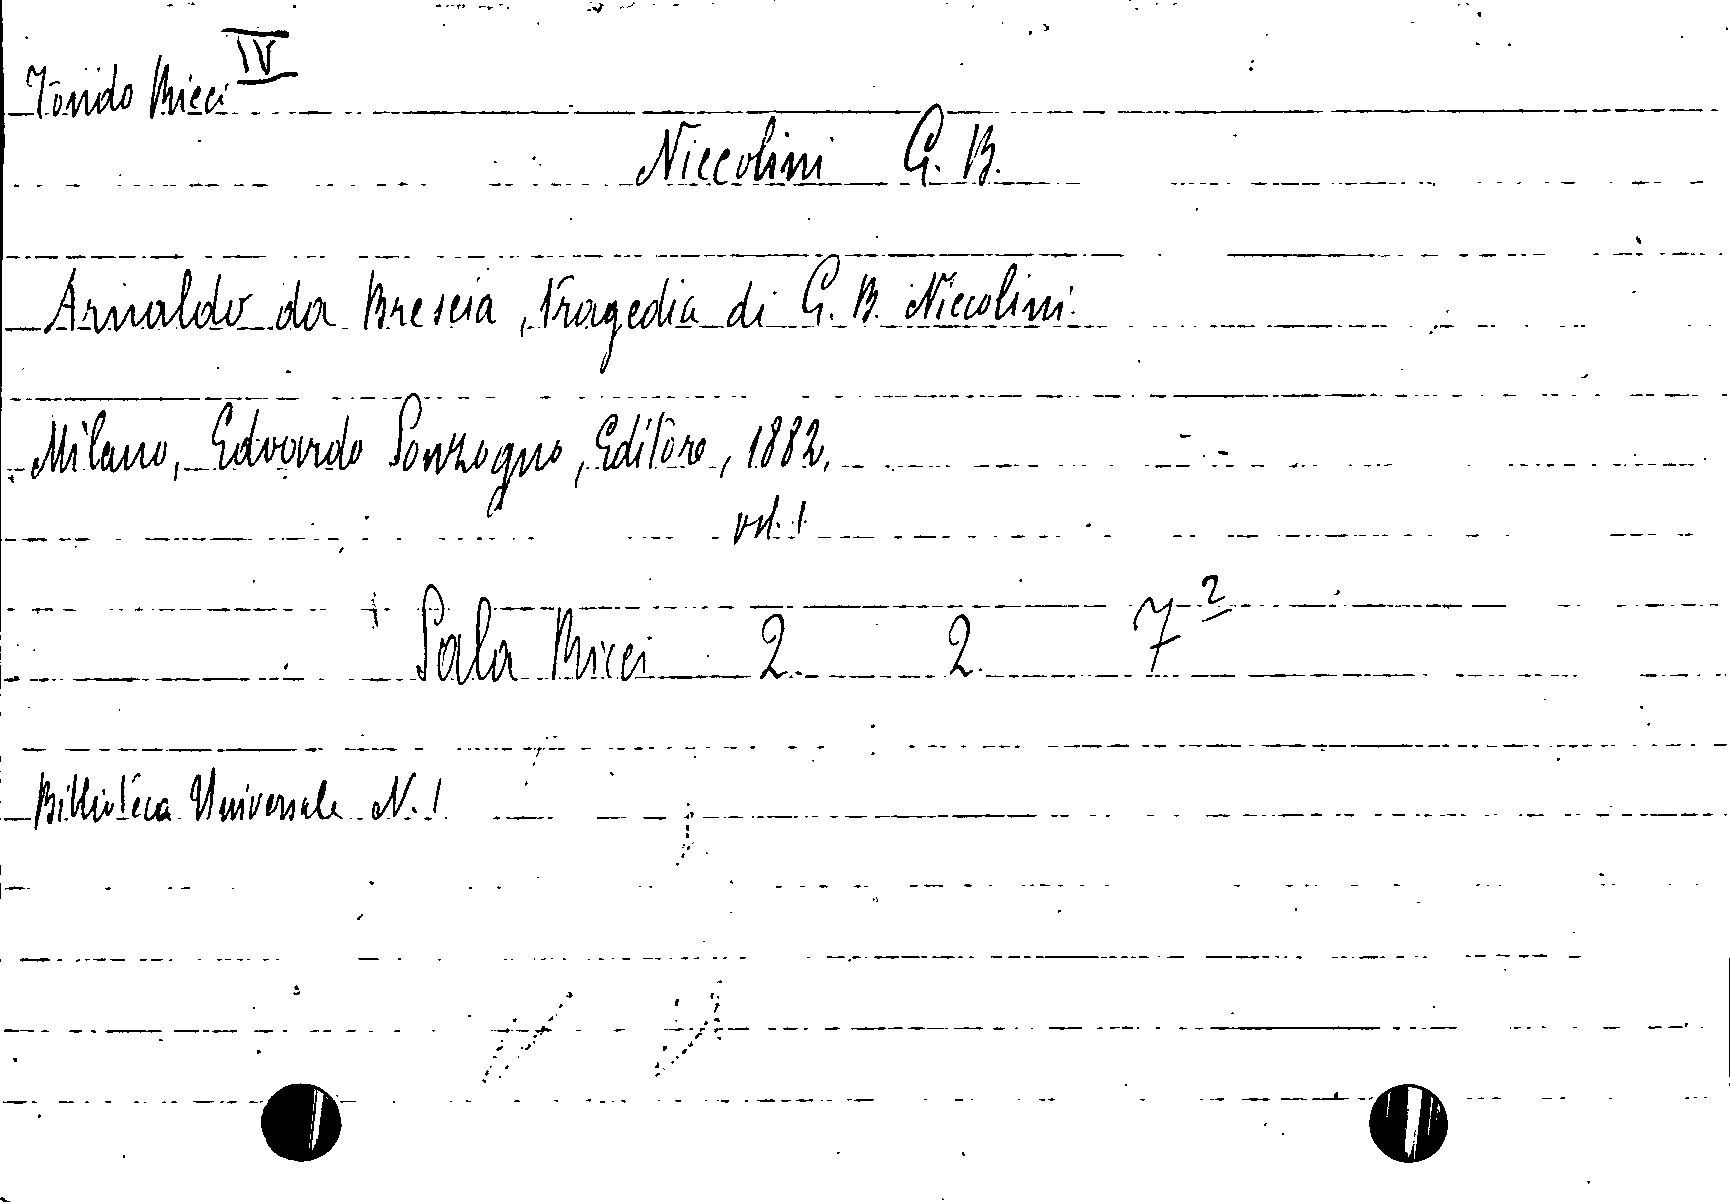 Fondo Ricci IV
Niccolini G. B.
Arnaldo da Brescia, tragedia di G. B. Niccolini.
Milano, Edoardo Sonzogno, Editore, 1882.
vol. 1
Sala Ricci 2. 2. 7 2
Biblioteca Universale N. 1